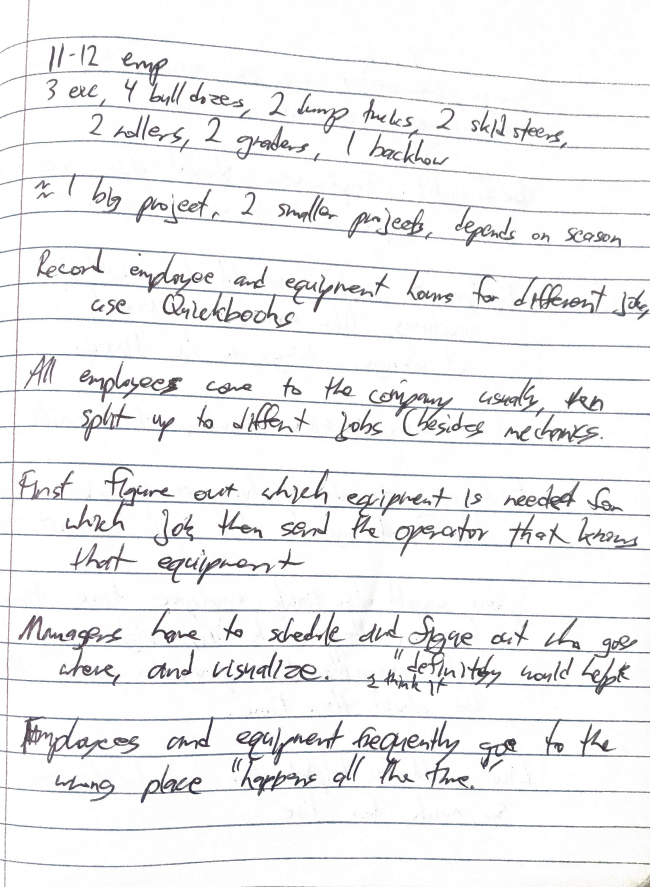 11-12 emp
3 exc, 4 bulldozers, 2 dump trucks, 2 skid steers,
2 rollers, 2 graders, 1 backhow
≈ 1 big project, 2 smaller projects, depends on season
Record employee and equipment hours for different jobs,
use Quickbooks
All employees come to the company usually, then
split up to diffent jobs (besides mechanics.
First figure out which equipment is needed for
which job, then send the operator that knows
that equipment
Managers have to schedule and figure out who goes
where, and visualize. "I think it definitely would help"
Employees and equipment frequently goe to the
wrong place "happens all the time."